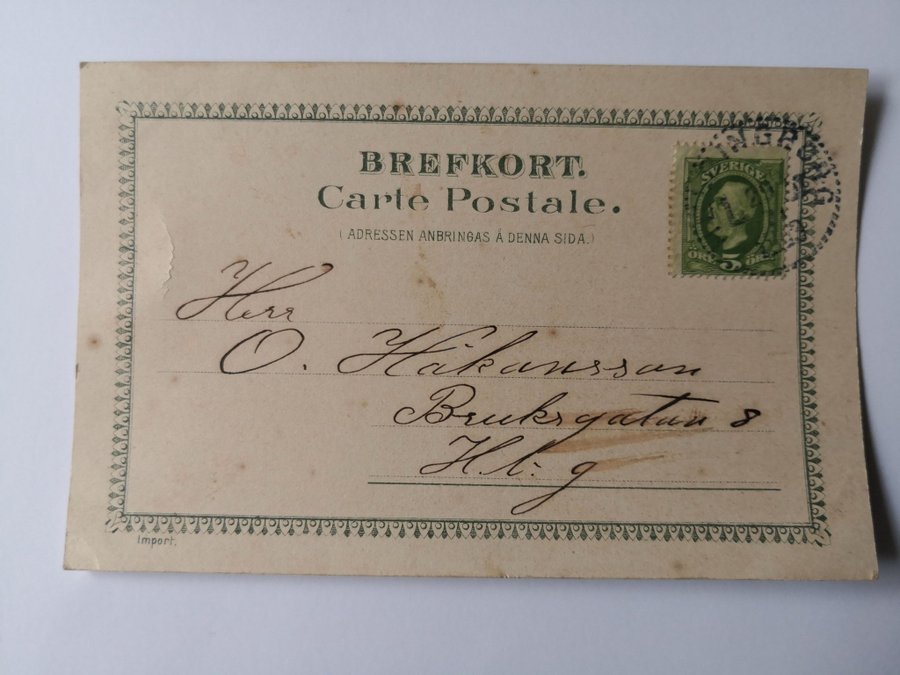 BREFKORT.
Carte Postale.
(ADRESSEN ANBRINGAS Å DENNA SIDA.)
SVERIGE
5
ÖRE
INGBORG
Herr
O. Håkansson
Bruksgatan 8
H.b:g
Import.